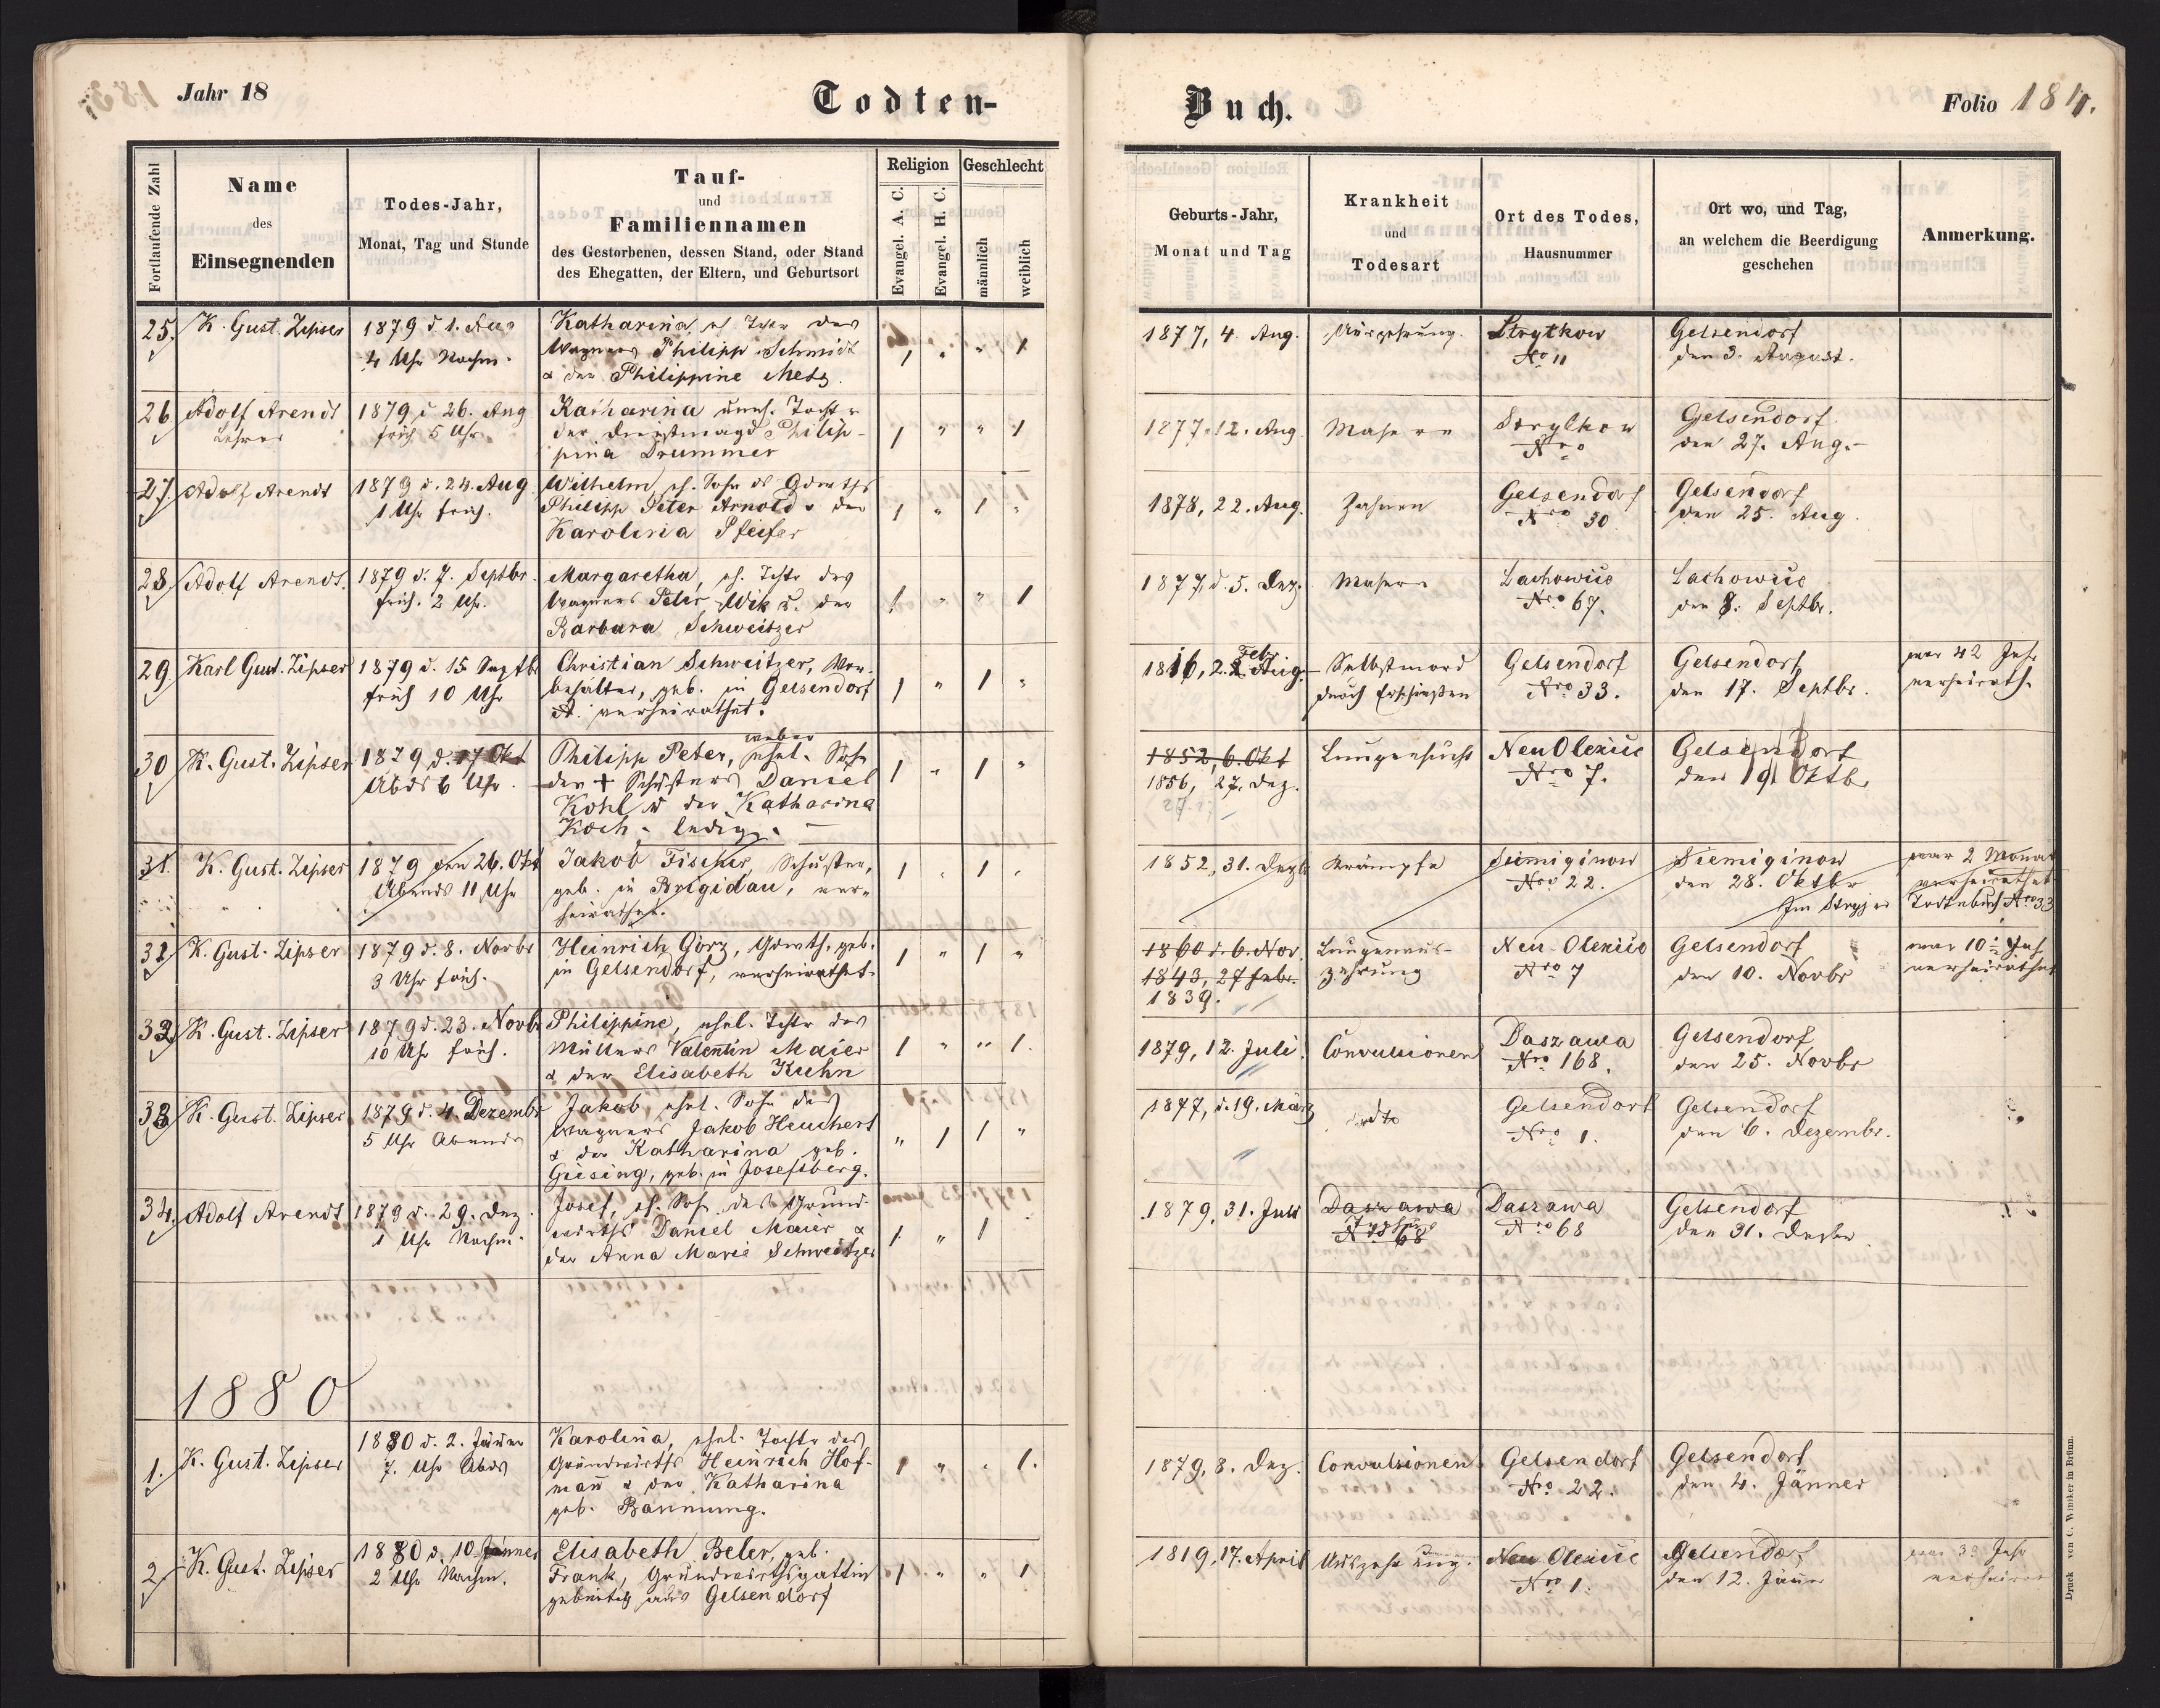 Jahr 18
Todten-
Buch.
Folio 184.
Fortlaufende Zahl
Name
des
Einsegnenden
Todes-Jahr,
Monat, Tag und Stunde
Tauf-
und
Familiennamen
des Gestorbenen, dessen Stand, oder Stand
des Ehegatten, der Eltern, und Geburtsort
Religion
Evangel. A. C.
Evangel. H. C.
Geschlecht
männlich
weiblich
Geburts-Jahr,
Monat und Tag
Krankheit
und
Todesart
Ort des Todes,
Hausnummer
Ort wo, und Tag,
an welchem die Beerdigung
geschehen
Anmerkung.
25. K. Gust. Zipser
1879 d. 1. Aug
4 Uhr Nachm.
Katharina, eh. Tchtr des
Wagners Philipp Schmidt
& der Philippine Metz.
1 " " 1
1877, 4. Aug.
Auszehrung.
Strytkow
No 11
Gelsendorf
den 3. August.
26 Adolf Arendt
Lehrer
1879 d. 26. Aug
früh 5 Uhr
Katharina uneh. Tocht.
der Dienstmagd Philip-
pina Drummer
1 " " 1
1877. 12. Aug
Masern
Nro
Gelsendorf
den 27. Aug.-
27. Adolf Arendt
1879 d. 24. Aug
1 Uhr früh.
Wilhelm, eh. Sohn ds Grdwths
Philipp Peter Arnold & der
Karolina Pfeifer
1 " 1 "
1878, 22. Aug.
Zahnen
Gelsendorf
Nro 30
Gelsendorf
den 25. Aug.
28. Adolf Arendt.
1879 d. 7. Septbr.
früh. 2 Uhr.
Margaretha, eh. Tchtr des
Wagners Peter Wik u. der
Barbara Schweitzer
1 " " 1
1877, d. 5. Dez.
Masern
Lachowice
Nro 67.
Lachowice
den 8. Septbr.
29. Karl Gust. Zipser
1879 d. 15 Septbr
früh 10 Uhr
Christian Schweitzer, Vor-
behälter, geb. in Gelsendorf
verheirathet.
1 " 1 "
Feb
1816, 2. Aug.
Selbstmord
durch Erschießen
Gelsendorf
Nro 33.
Gelsendorf
den 17. Septbr.
war 42 Jahr
verheirath.
30 K. Gust. Zipser
1879 d. 17 Okt
Abds 6 Uhr
weber
Philipp Peter, ehel. Sohn
des + Schusters Daniel
Kohl & der Katharina
Koch. ledig.
1 " 1 "
1852, 6. Okt
1856, 27. Dez.
Lungensucht
Neu Olexice
Nro 7.
Gelsendorf
den 19 Oktb.
31. K. Gust. Zipser
1879 den 26. Okt
Abends 11 Uhr
Jakob Fischer, Schuster,
geb. in Brigidau, ver-
heirathet.
1 " 1 "
1852, 31. Dezb
Krämpfe
Siemiginow
Nro 22.
Siemiginow
den 28. Oktbr
Im Stryjer
war 2 Monat
verheirathet
Todtenbuch Nro 33
31. K. Gust. Zipser
1879 d. 8. Novbr
3 Uhr früh.
Heinrich Görz, Grwth. geb.
in Gelsendorf, verheirathet.
1 " 1 "
1860 d. 6. Nov.
1843, 27 Febr.
1839.
Lungenaus-
zehrung
Neu-Olexice
Nro 7
Gelsendorf
den 10. Novbr
war 10 Jahr
verheirathet
32. K. Gust. Zipser
1879 d. 23. Novb
10 Uhr früh.
Philippine, ehel. Tchtr des
Müllers Valentin Maier
& der Elisabeth Kuhn
1 " " 1.
1879, 12. Juli.
Convulsionen
Daszawa
Nro 168.
Gelsendorf
den 25. Novbr
33 K. Gust. Zipser
1879 d. 4. Dezembr
5 Uhr Abends
Jakob, ehel. Sohn des
Wagners Jakob Heuchert
& der Katharina geb.
Giesing, geb. in Josefsberg.
" 1 1 "
1877, d. 19. März
dto
Gelsendorf
Nro 1.
Gelsendorf
den 6. Dezembr.
34. Adolf Arendt
1879 d. 29. Dez
1 Uhr Nachm.
Josef, eh. Sohn des Grund-
wirths Daniel Maier &
der Anna Marie Schweitzer
1. " 1
1879, 31. Juli
Daszawa
Nro 68
Daszawa
Nro 68
Gelsendorf
den 31. Dezbr
1880
1. K. Gust. Zipser
1880 d. 2. Jäner
7. Uhr Abds
Karolina, ehel. Tochtr des
Grundwirths Heinrich Hof-
mañ & der Katharina
geb. Bannung.
1 " " 1.
1879, 8. Dez.
Convulsionen
Gelsendorf
Nro 22.
Gelsendorf
den 4. Jänner
2. K. Gust. Zipser
1880 d. 10. Jänner
2 Uhr Nachm.
Elisabeth Beler, geb.
Frank, Grundwirthsgattin
gebürtig aus Gelsendorf
1 " " 1
1819, 17. April
Auszehrung.
Neu Olexice
Nro 1.
Gelsendorf
den 12. Jäner
war 39 Jahr
Druck von C. Winiker in Brünn.